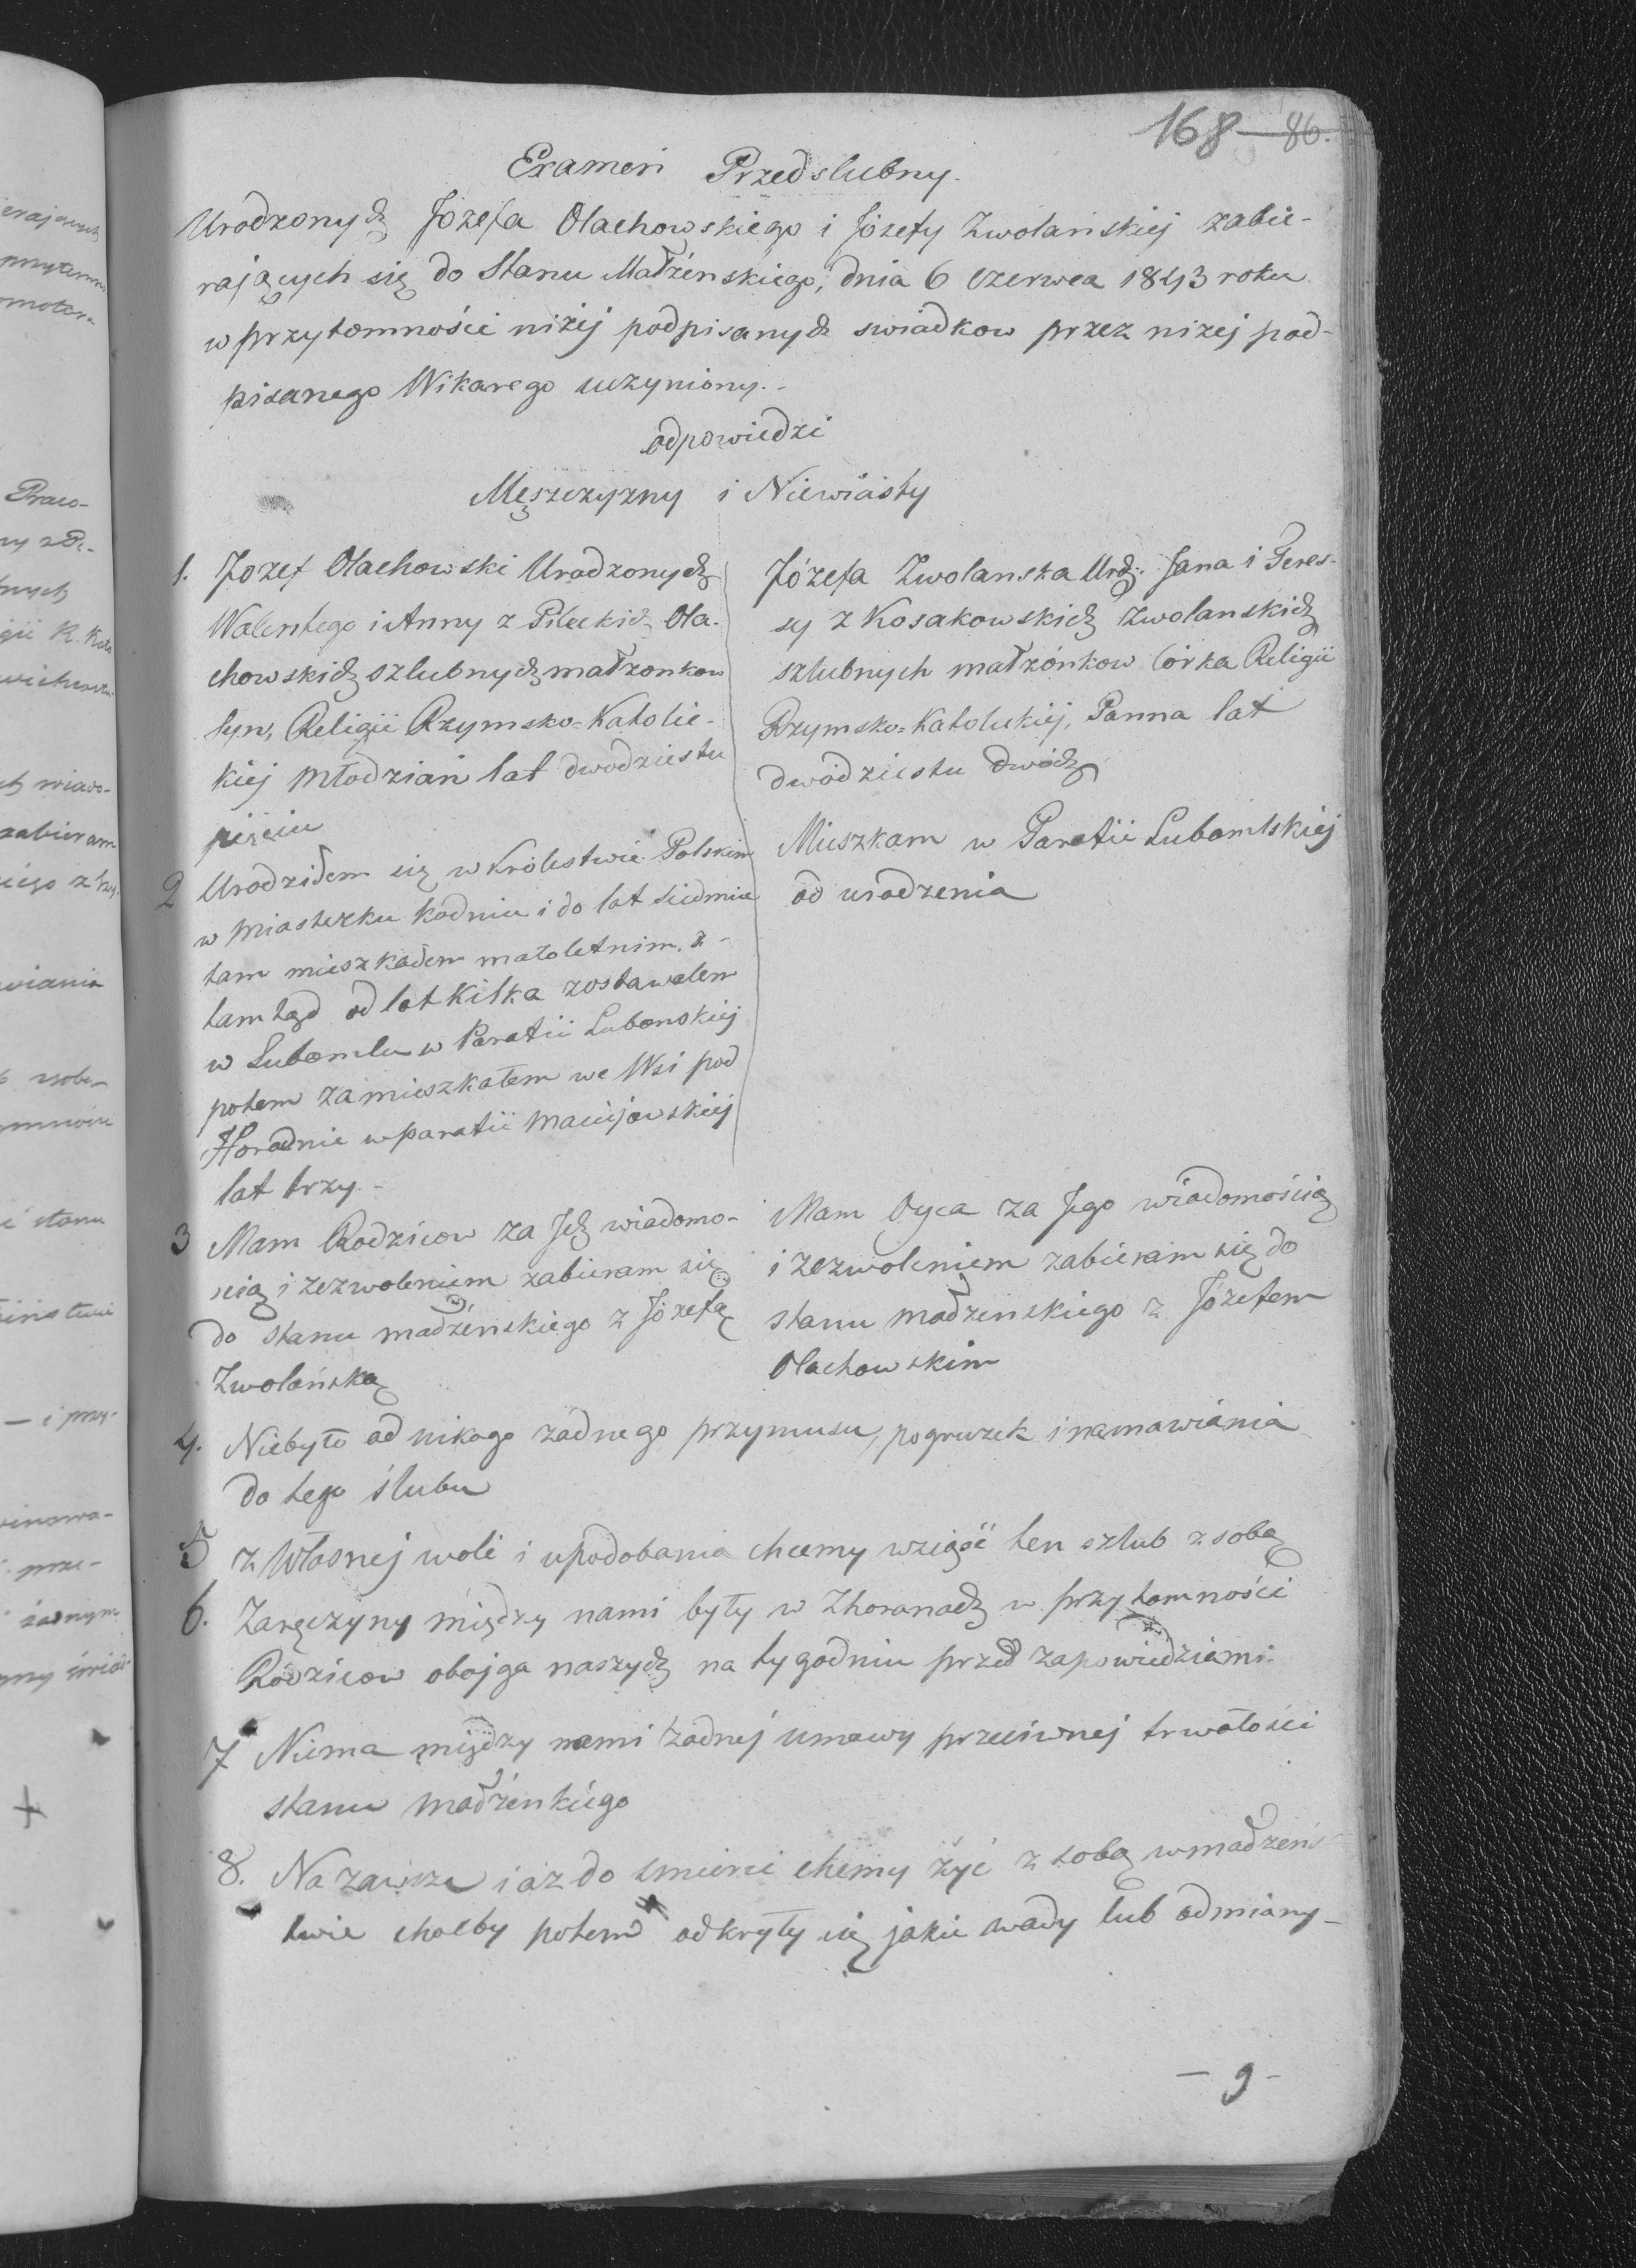 168 86.
Examen Przedslubny.
Urodzonych Józefa Olachowskiego i Józefy Zwolańskiej zabie-
rających się do Stanu Małżenskiego, dnia 6 Czerwca 1843 roku
w przytomności niżej podpisanych swiadkow przez niżej pod-
pisanego Wikarego uczyniony.-
odpowiedzi
Męszczyzny i Niewiasty
1. Jozef Olachowski Urodzonych
Walentego i Anny z Pileckich Ola-
chowskich szlubnych małzonkow
syn, Religii Rzymsko-Katolic-
kiej Młodzian lat dwodziestu
pięciu
2 Urodziłem się w Królestwie Polskim
w Miasteczku Kodniu i do lat siedmiu
tam mieszkałem małoletnim. z-
tamtąd od lat kilka zostawałem
w Lubomlu w Parafii Lubomskiej
potem zamieszkałem we Wsi pod
Horodnie w parafii Maciejowskiej
lat trzy.-
3 Mam Rodzicow za Jch wiadomo-
scią i zezwoleniem zabieram się
do stanu małżeńskiego z Józefą
Zwolańską
Józefa Zwolanska Urdz: Jana i Teres-
sy z Kosakowskich Zwolanskich
szlubnych małżónkow Córka Religii
Rzymsko-Katolickiej, Panna lat
dwódziestu dwóch
Mieszkam w Parafii Lubomlskiej
od urodzenia
Mam Oyca za Jego wiadomością
i zezwoleniem zabieram się do
stanu małżenskiego z Józefem
Olachowskim
4. Niebyło od nikogo żadnego przymusu, pogruzek i namawiania
do tego ślubu
5 z Własnej woli i upodobania chcemy wziąść ten szlub z sobą
6. Zaręczyny między nami były w Zhoranach w przytomności
Rodzicow obojga naszych na tygodniu przed zapowiedziami.
7 Niema między nami żadnej umowy przeciwnej trwałości
stanu małżénkiego
8. Na zawsze i aż do smierci chcemy żyć z sobą w małżens-
twie choćby potem odkryły się jakie wady lub odmiany-
- 9 -